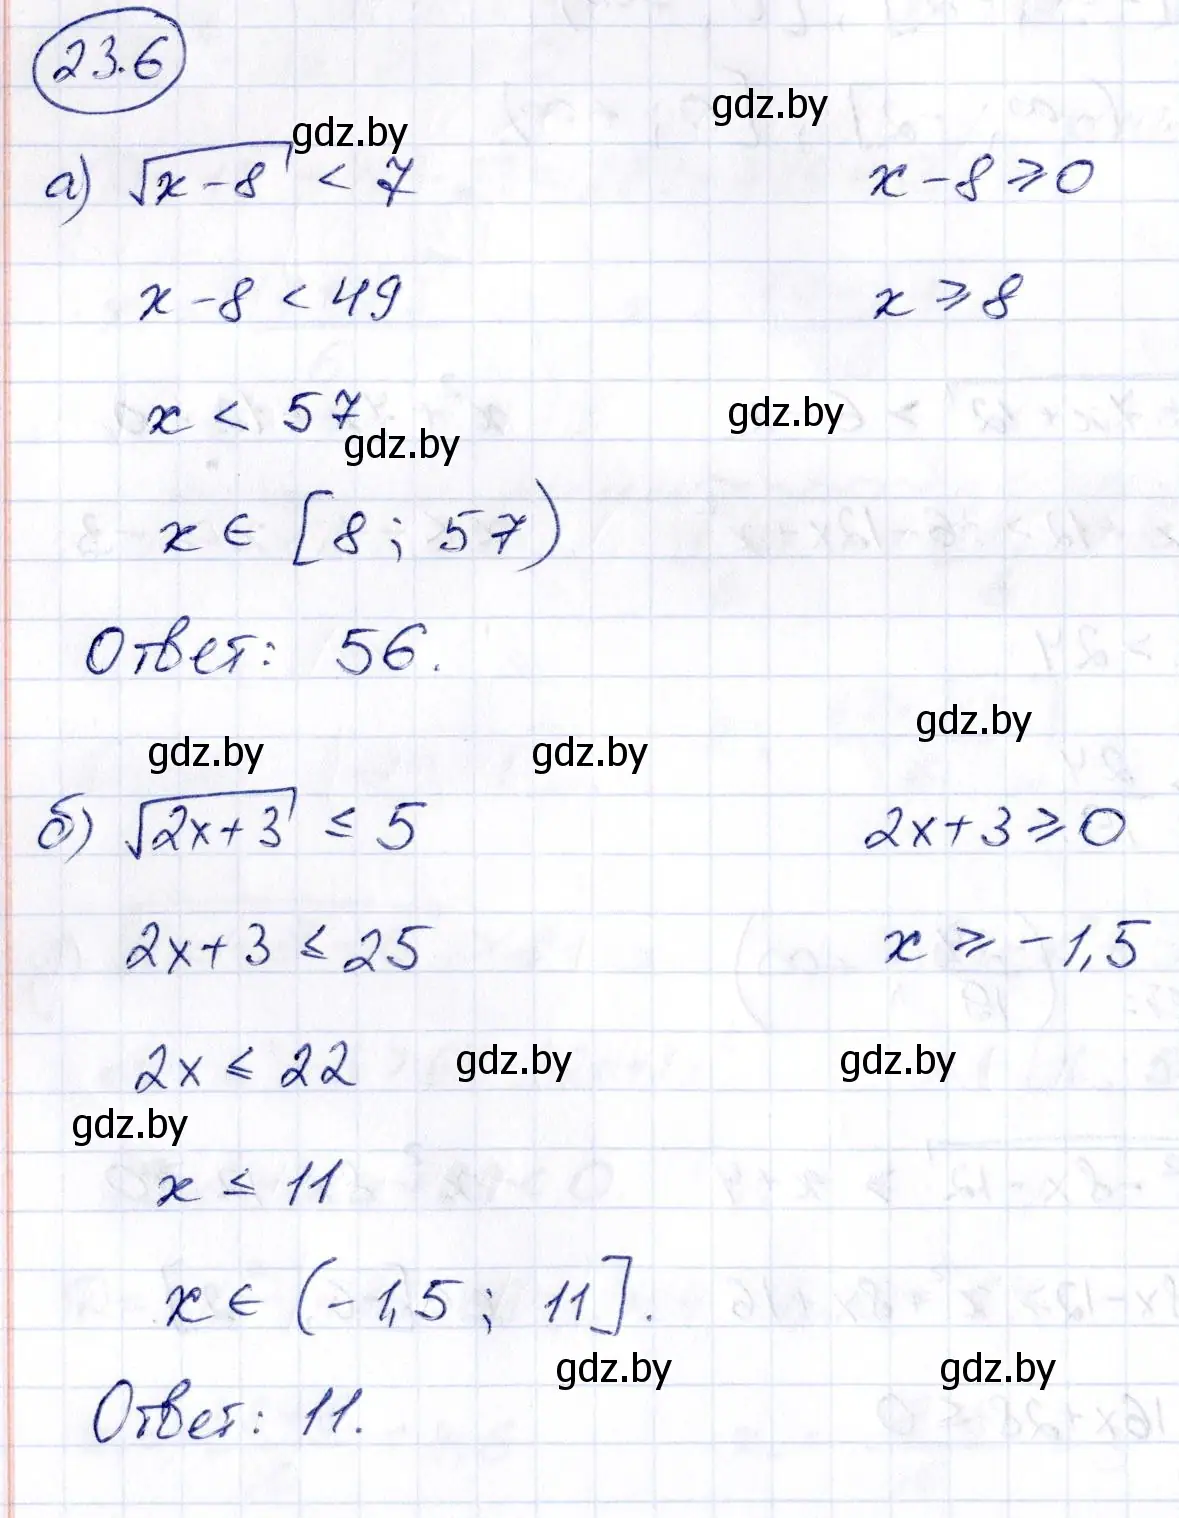 23.6
gdz.by
gdz.by
а) √x-8 < 7    x-8 ⩾ 0
x-8 < 49    x ⩾ 8
x < 57
gdz.by
gdz.by
x ∈ [8; 57)
Ответ: 56.
gdz.by
gdz.by
gdz.by
б) √2x+3 ≤ 5    2x+3 ⩾ 0
2x+3 ≤ 25    x ⩾ -1,5
2x ≤ 22
gdz.by
gdz.by
gdz.by
x ≤ 11
x ∈ (-1,5; 11].
gdz.by
gdz.by
Ответ: 11.